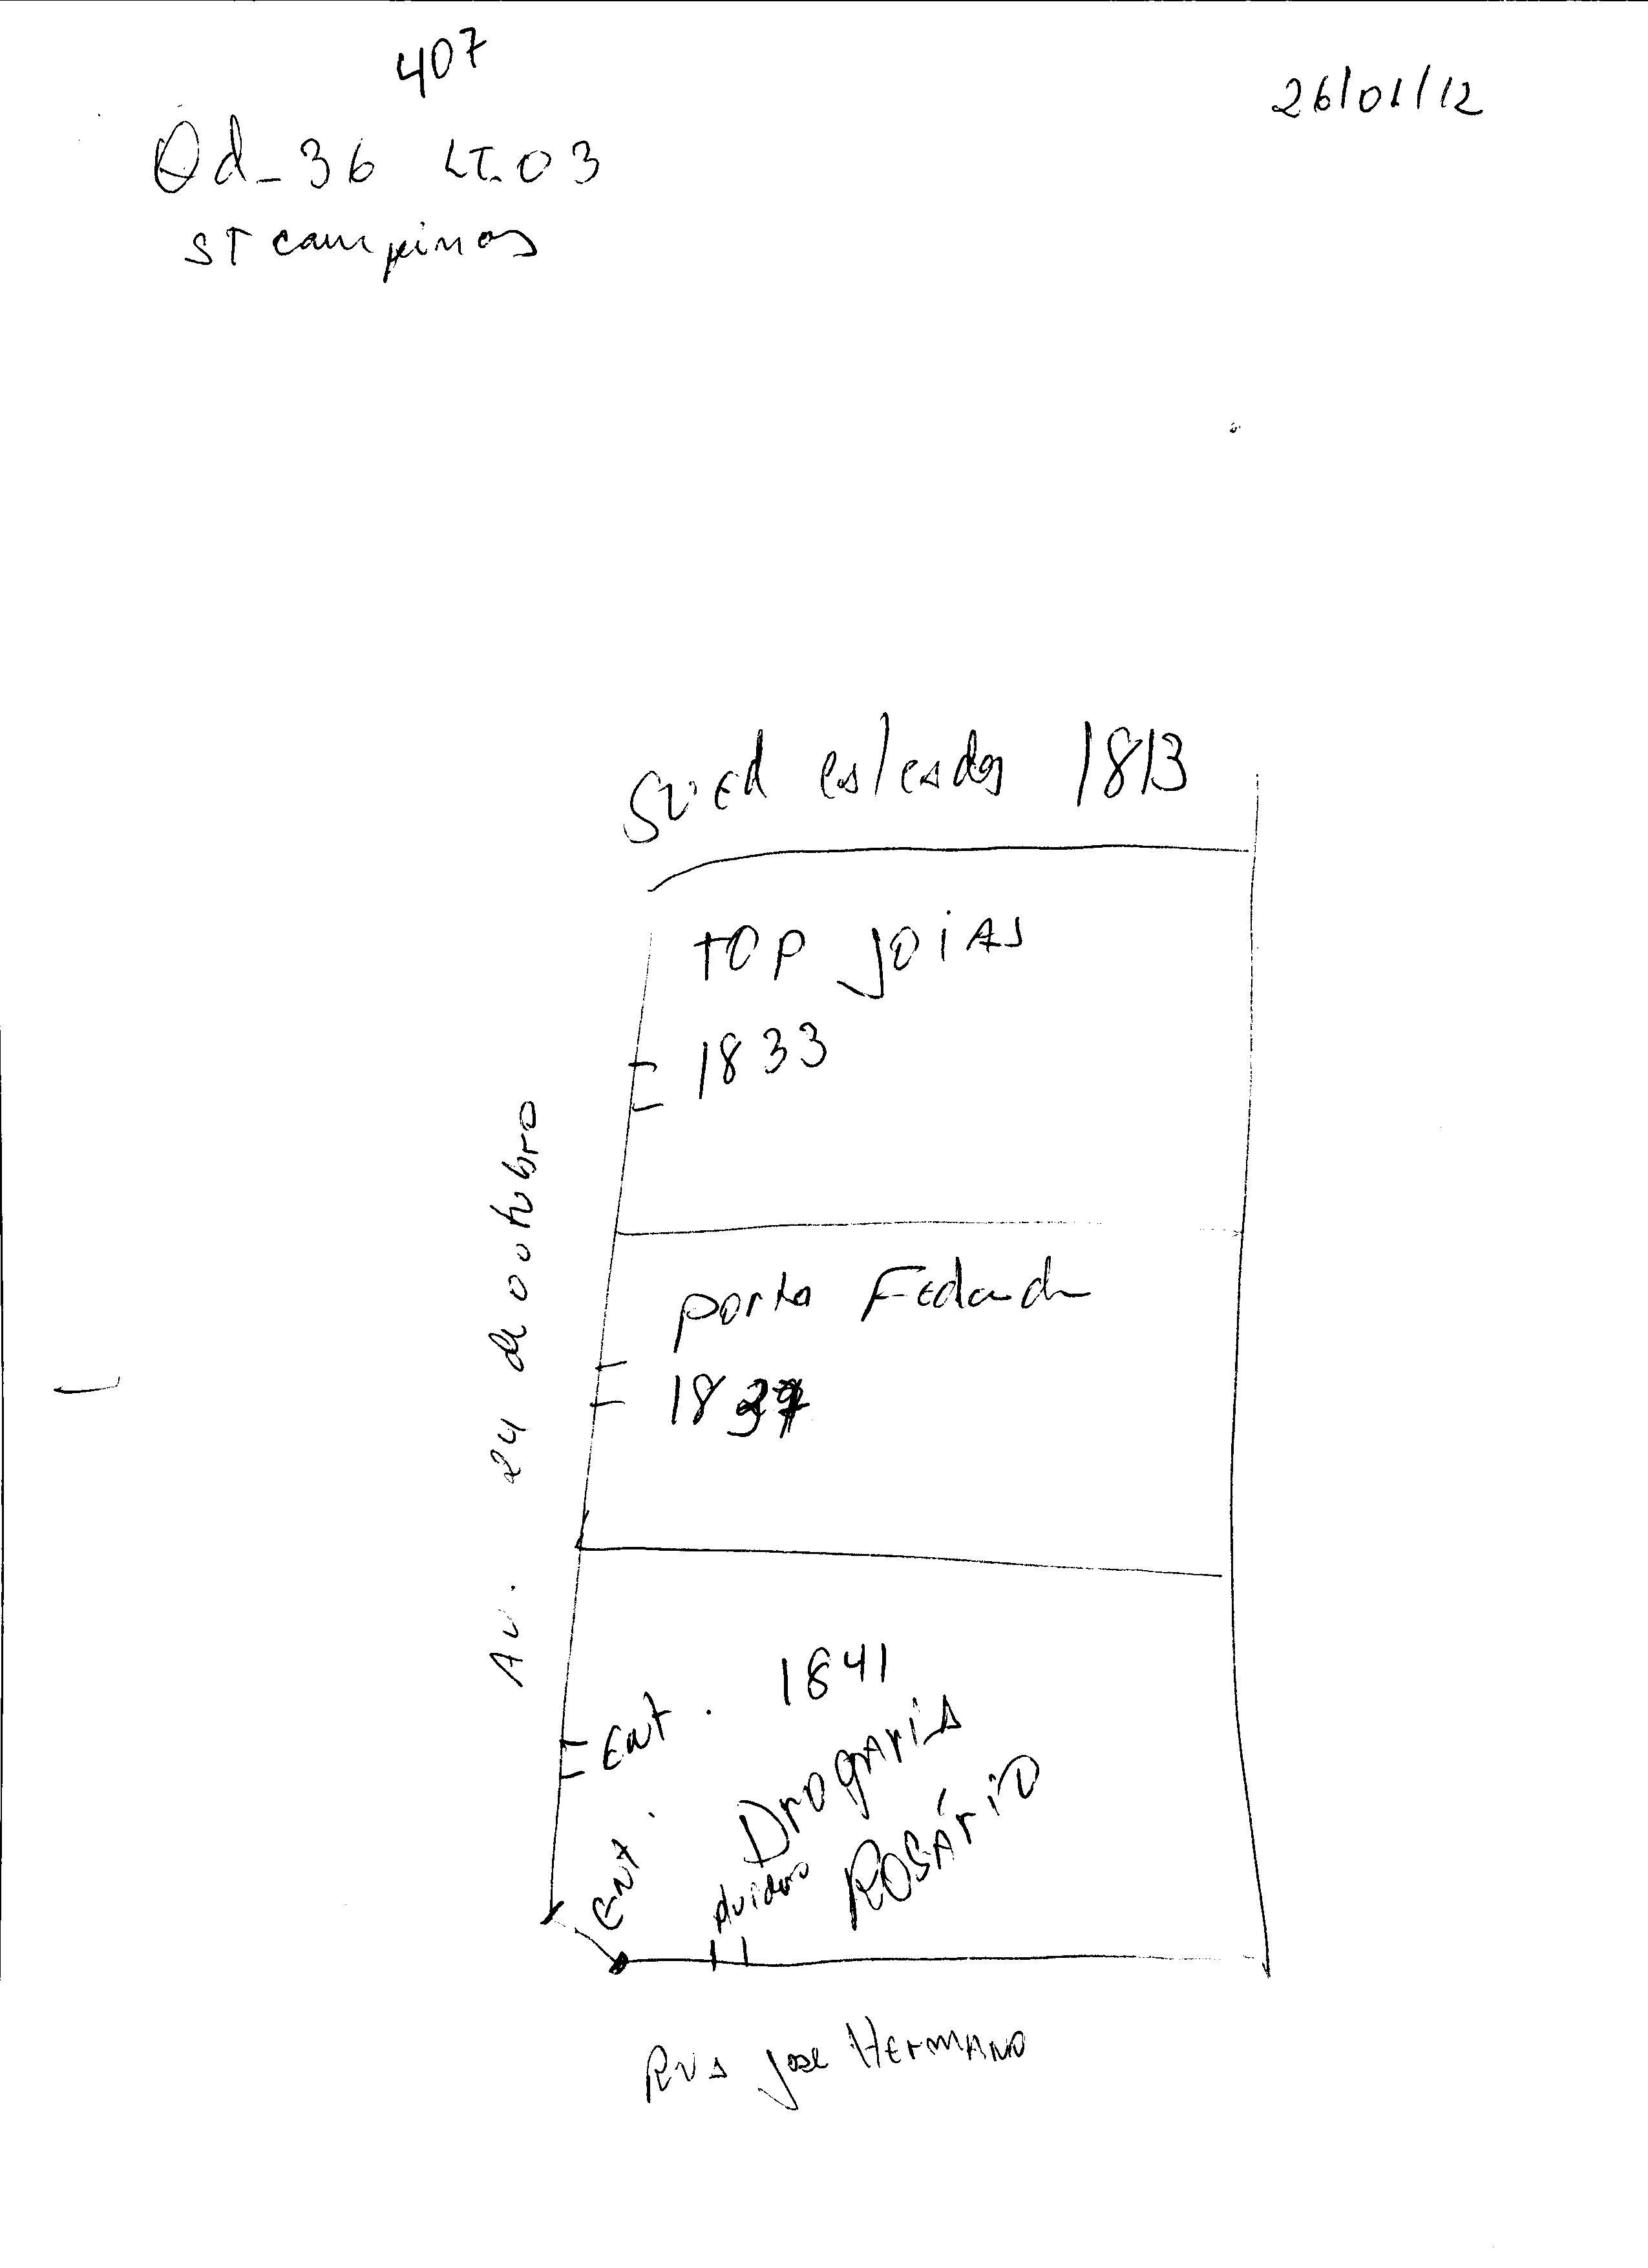 407
26/01/12
Qd-36 LT.03
ST campinas
SUED calçados 1813
TOP JOIAS
1833
porta Fechada
1837
Av. 24 de outubro
1841
Ent.
Drogaria
ROSÁRIO
Ent.
Rua José HERMANO